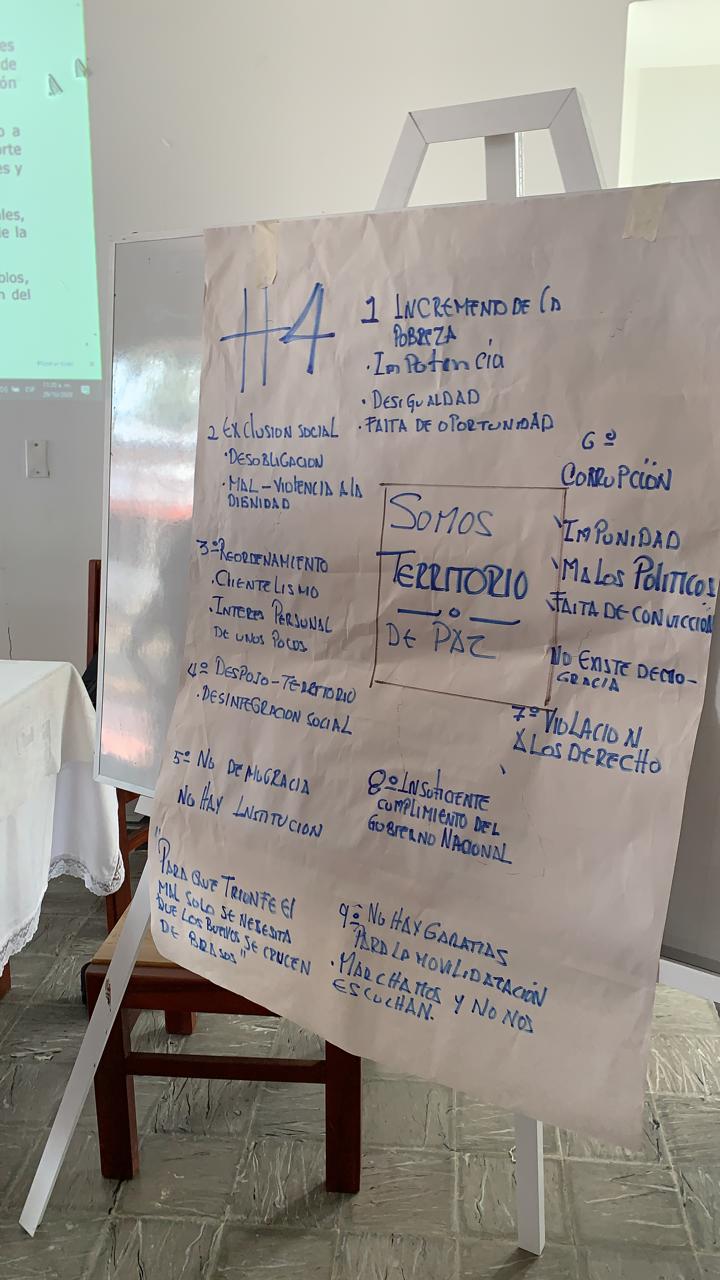 es
de
ón
o a
orte
es y
les,
de la
olos,
n del
ESP
#4
1 INCREMENTO DE LA
POBREZA
. Impotencia
. DESIGUALDAD
. FALTA DE OPORTUNIDAD
2 EXCLUSION SOCIAL
. DESOBLIGACION
. MAL - VIOLENCIA A LA
DIGNIDAD
3º REORDENAMIENTO
. CLIENTELISMO
. INTERES PERSONAL
DE UNOS POCOS
4º DESPOJO - TERRITORIO
. DESINTEGRACION SOCIAL
5º NO DEMOGRACIA
NO HAY INSTITUCION
"PARA QUE TRIUNFE El
MAL SOLO SE NESESITA
QUE LOS BUENOS SE CRUCEN
DE BRASOS"
SOMOS
TERRITORIO
DE PAZ
6º
CORRUPCIÓN
IMPUNIDAD
MALOS POLITICOS
FALTA DE CONVICCIÓN
NO EXISTE DEMO-
GRACIA
7º VIOLACION
A LOS DERECHO
8º INSUFICIENTE
CUMPLIMIENTO DEL
GOBIERNO NACIONAL
9º NO HAY GARATIAS
PARA LA MOVILIDAZACIÓN
. MARCHAMOS Y NO NOS
ESCUCHAN.